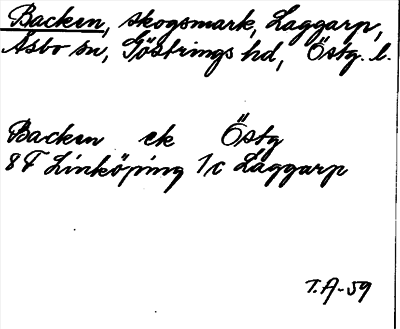 Backen, skogsmark, Laggarp,
Åsbo sn, Göstrings hd, Östg. l.
Backen ek Östg
8F Linköping 1c Laggarp
T.A-59